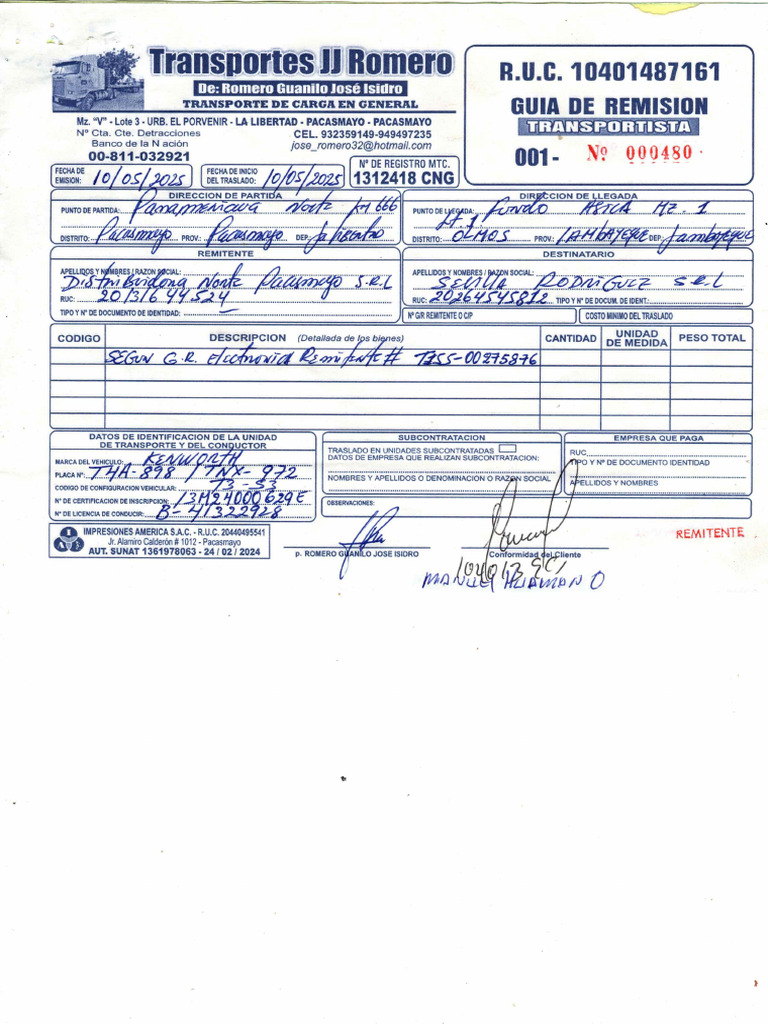 Transportes JJ Romero
De: Romero Guanilo José Isidro
TRANSPORTE DE CARGA EN GENERAL
Mz. "V" - Lote 3 - URB. EL PORVENIR - LA LIBERTAD - PACASMAYO - PACASMAYO
Nº Cta. Cte. Detracciones
Banco de la N ación
00-811-032921
CEL. 932359149-949497235
jose_romero32@hotmail.com
R.U.C. 10401487161
GUIA DE REMISION
TRANSPORTISTA
001- Nº 000480
FECHA DE EMISIÓN: 10/05/2025
FECHA DE INICIO DEL TRASLADO: 10/05/2025
Nº DE REGISTRO MTC.
1312418 CNG
DIRECCION DE PARTIDA
PUNTO DE PARTIDA: Panamericana Norte KM 666
DISTRITO: Pacasmayo PROV.: Pacasmayo DEP.: La Libertad
DIRECCION DE LLEGADA
PUNTO DE LLEGADA: Fundo MZ. 1
Lt 1
DISTRITO: OLMOS PROV: LAMBAYEQUE DEP.: Lambayeque
REMITENTE
APELLIDOS Y NOMBRES / RAZON SOCIAL:
Distribuidora Norte Pacasmayo S.R.L
RUC: 20131644524
TIPO Y Nº DE DOCUMENTO DE IDENTIDAD: —
DESTINATARIO
APELLIDOS Y NOMBRES / RAZON SOCIAL:
SEVILLA RODRIGUEZ S.R.L
RUC: 20264545812 TIPO Y Nº DE DOCUM. DE IDENT.:
Nº GR REMITENTE O C/P
COSTO MINIMO DEL TRASLADO
CODIGO DESCRIPCION (Detallada de los bienes) CANTIDAD UNIDAD DE MEDIDA PESO TOTAL
SEGUN G.R. Electronica Remitente # T255-00275876
DATOS DE IDENTIFICACION DE LA UNIDAD
DE TRANSPORTE Y DEL CONDUCTOR
MARCA DEL VEHICULO: KENWORTH
PLACA Nº: T4A-898 / TNX-972
CODIGO DE CONFIGURACION VEHICULAR: T3-S3
Nº DE CERTIFICACION DE INSCRIPCION: 13M24000629E
Nº DE LICENCIA DE CONDUCIR: B-41322928
SUBCONTRATACION
TRASLADO EN UNIDADES SUBCONTRATADAS
DATOS DE EMPRESA QUE REALIZAN SUBCONTRATACION:
NOMBRES Y APELLIDOS O DENOMINACION O RAZON SOCIAL
EMPRESA QUE PAGA
RUC
TIPO Y Nº DE DOCUMENTO IDENTIDAD
APELLIDOS Y NOMBRES
OBSERVACIONES:
IMPRESIONES AMERICA S.A.C. - R.U.C. 20440495541
Jr. Alamiro Calderón # 1012 - Pacasmayo
AUT. SUNAT 1361978063 - 24 / 02 / 2024
p. ROMERO GUANILO JOSE ISIDRO
Conformidad del Cliente
REMITENTE
MANUEL HUAMAN O